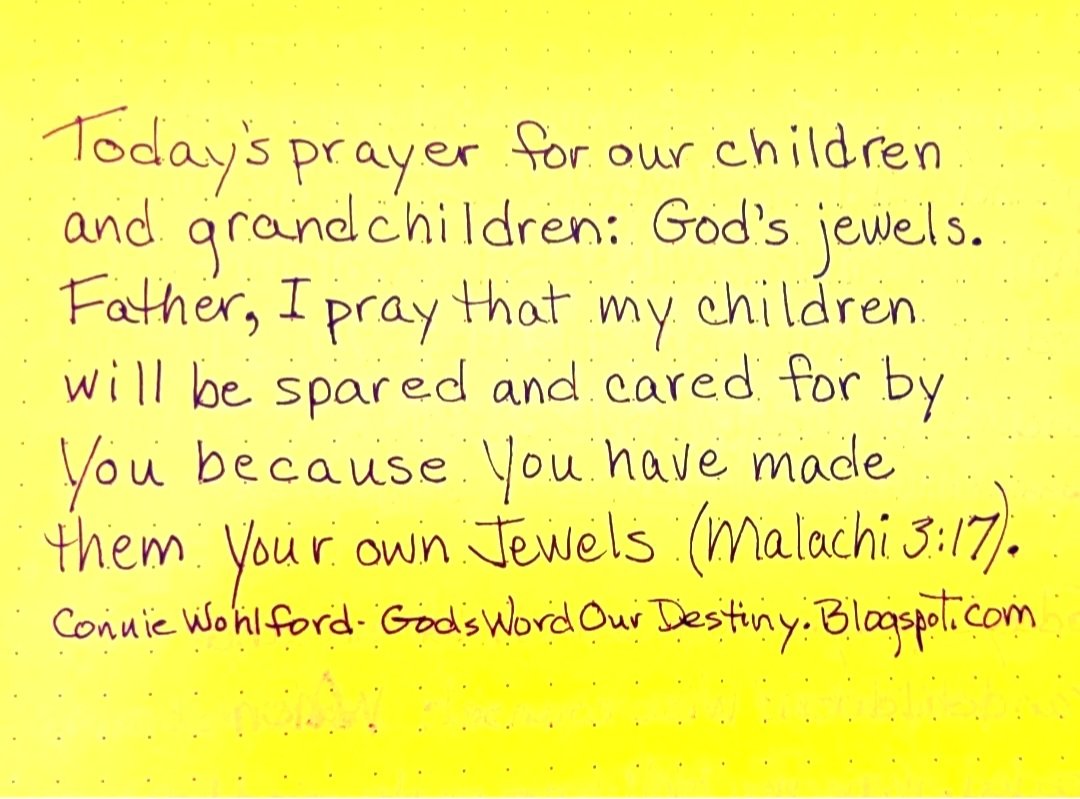 Today's prayer for our children
and grandchildren: God's jewels.
Father, I pray that my children
will be spared and cared for by
You because You have made
them Your own Jewels (Malachi 3:17).
Connie Wohlford- GodsWordOurDestiny.Blogspot.com